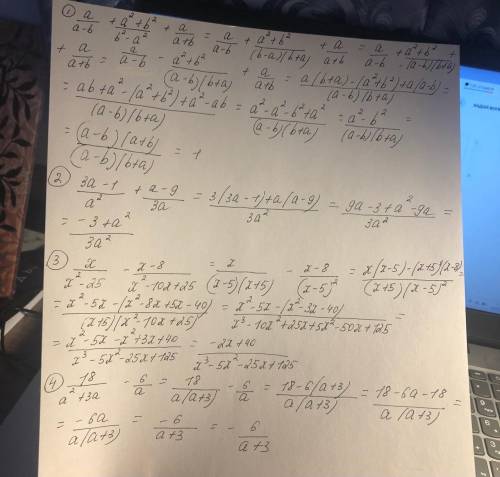 ① a/(a-b) + (a²+b²)/(b²-a²) + a/(a+b) = a/(a-b) + (a²+b²)/((b-a)(b+a)) + a/(a+b) = a/(a-b) + (a²+b²)/(-(a-b)(b+a)) +
+ a/(a+b) = a/(a-b) - (a²+b²)/((a-b)(b+a)) + a/(a+b) = (a(b+a)-(a²+b²)+a(a-b))/((a-b)(b+a)) =
= (ab+a²-(a²+b²)+a²-ab)/((a-b)(b+a)) = (a²-a²-b²+a²)/((a-b)(b+a)) = (a²-b²)/((a-b)(b+a)) =
= ((a-b)(a+b))/((a-b)(b+a)) = 1
② (3a-1)/a² + (a-9)/3a = (3(3a-1)+a(a-9))/3a² = (9a-3+a²-9a)/3a² =
= (-3+a²)/3a²
③ x/(x²-25) - (x-8)/(x²-10x+25) = x/((x-5)(x+5)) - (x-8)/(x-5)² = (x(x-5)-(x+5)(x-8))/((x+5)(x-5)²) =
= (x²-5x-(x²-8x+5x-40))/((x+5)(x²-10x+25)) = (x²-5x-(x²-3x-40))/(x³-10x²+25x+5x²-50x+125) =
= (x²-5x-x²+3x+40)/(x³-5x²-25x+125) = (-2x+40)/(x³-5x²-25x+125)
④ 18/(a²+3a) - 6/a = 18/(a(a+3)) - 6/a = (18-6(a+3))/(a(a+3)) = (18-6a-18)/(a(a+3)) =
= -6a/(a(a+3)) = -6/(a+3) = - 6/(a+3)